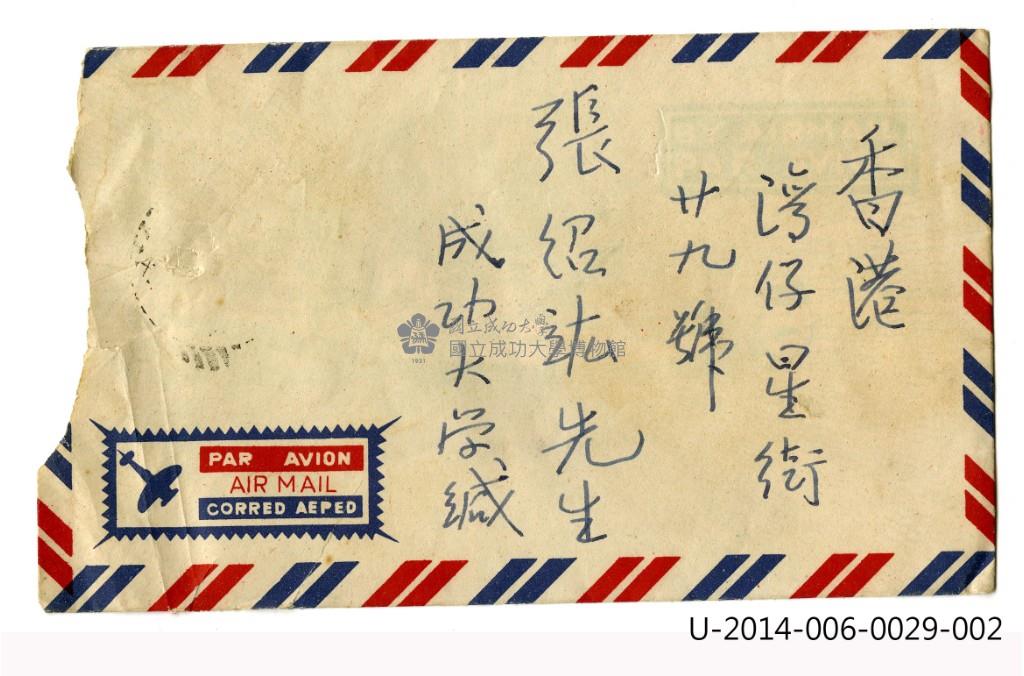 香港
湾仔星街
廿九號
張紹 先生
成功大学緘
國立成功大學
國立成功大學博物館
1931
PAR AVION
AIR MAIL
CORRED AEPED
U-2014-006-0029-002